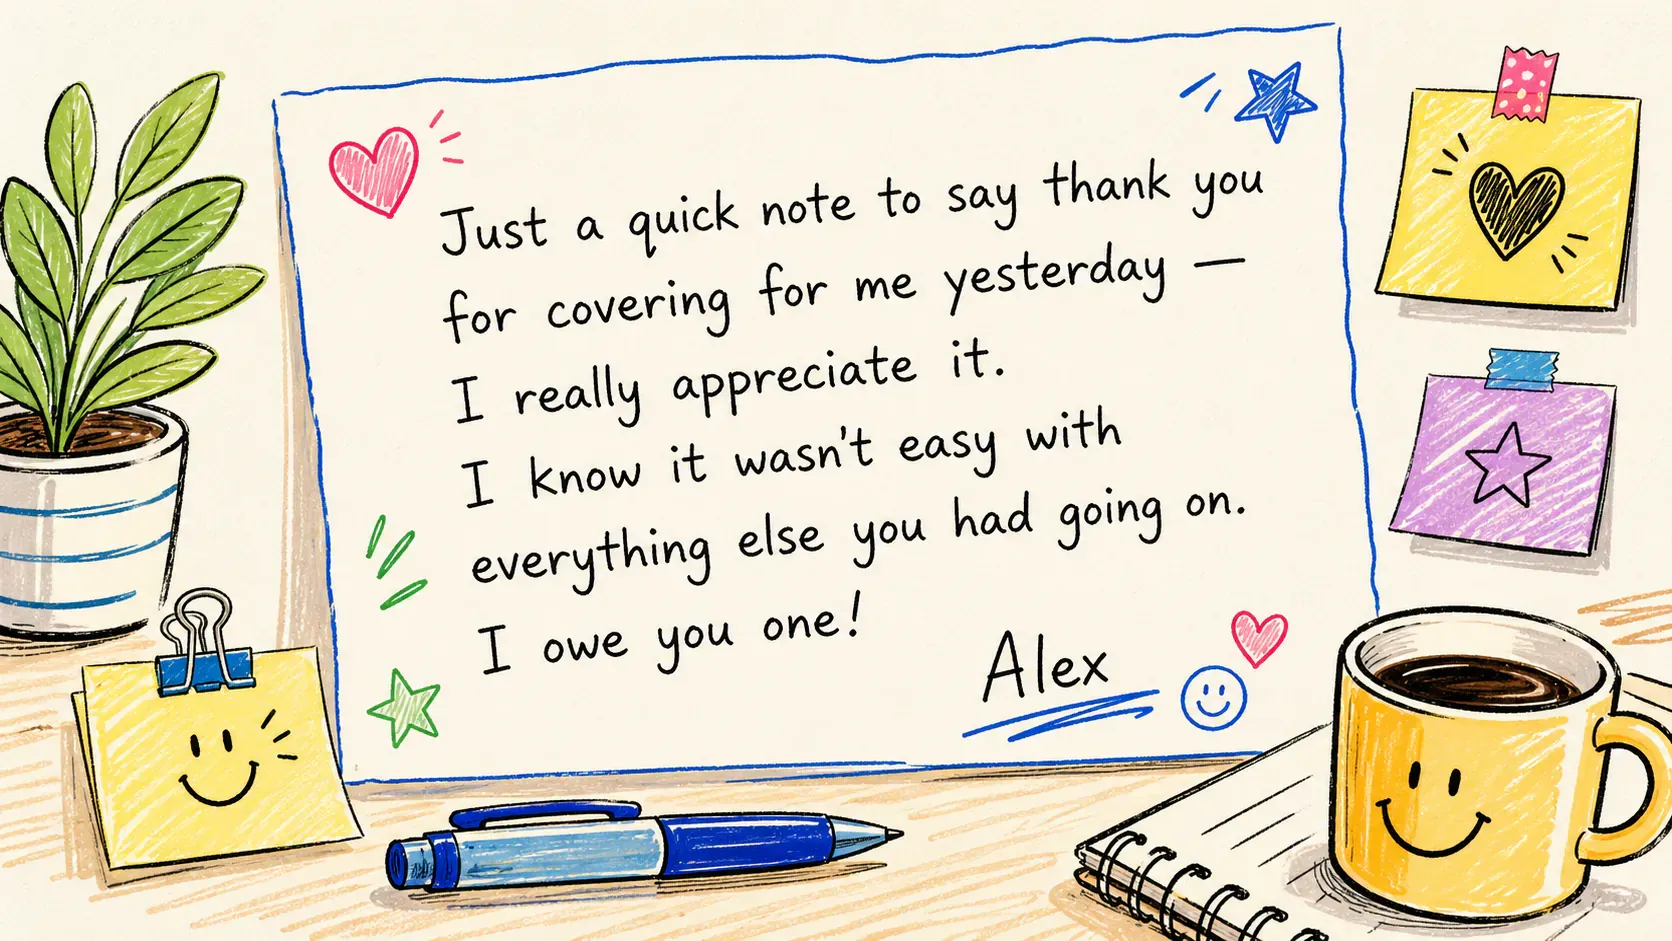 Just a quick note to say thank you
for covering for me yesterday —
I really appreciate it.
I know it wasn't easy with
everything else you had going on.
I owe you one!
Alex